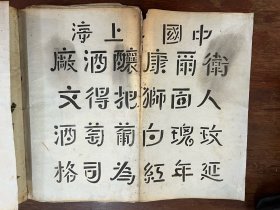 中國上海
衛爾康釀酒廠
人面獅把得文
玫瑰白葡萄酒
延年紅為司格